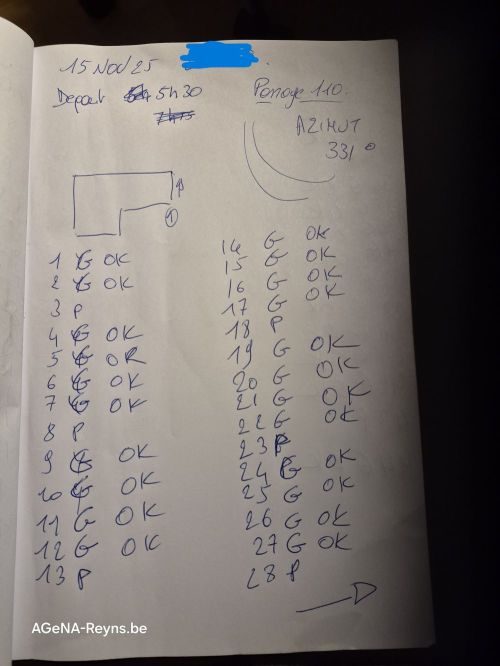 15 Nov 25
Depart 5h30
Ponoge 110.
AZIMUT
331°
1
1 G OK
2 G OK
3 P
4 G OK
5 G OK
6 G OK
7 G OK
8 P
9 G OK
10 G OK
11 G OK
12 G OK
13 P
14 G OK
15 G OK
16 G OK
17 G OK
18 P
19 G OK
20 G OK
21 G OK
22 G OK
23 P
24 G OK
25 G OK
26 G OK
27 G OK
28 P
AGeNA-Reyns.be